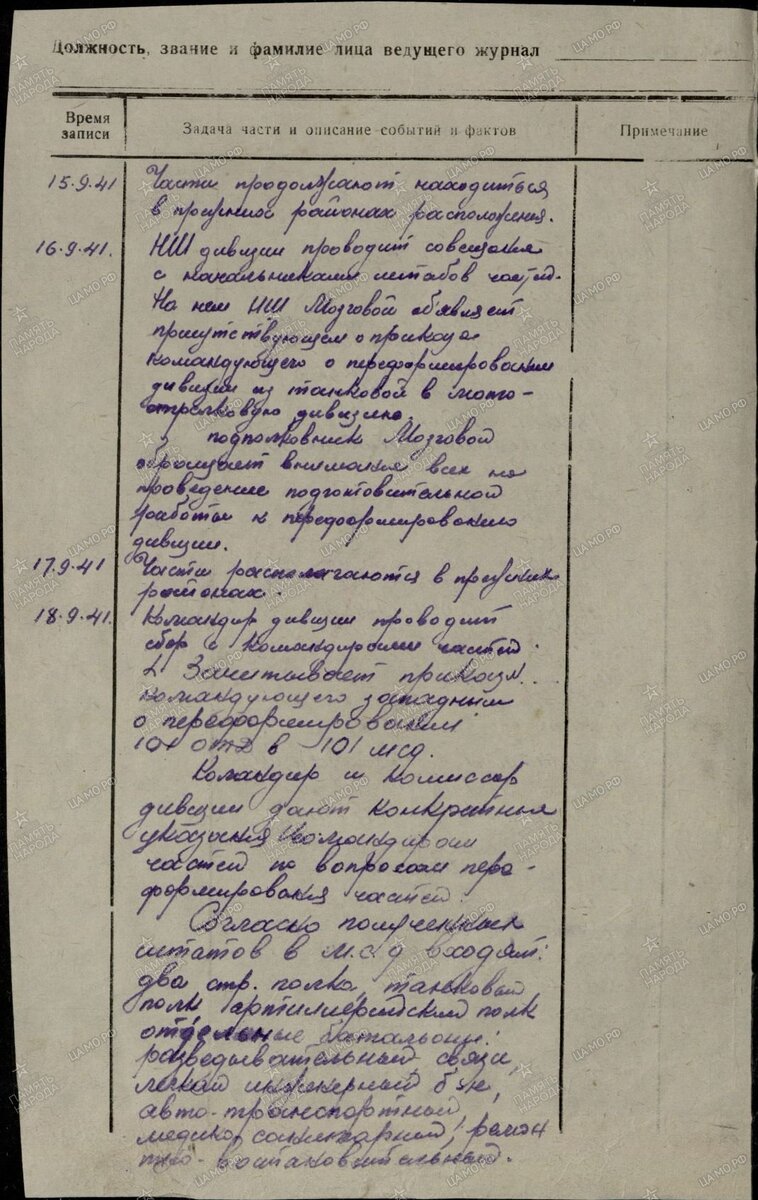 Должность, звание и фамилие лица ведущего журнал
Время записи
Задача части и описание событий и фактов
Примечание
15.9.41 Части продолжают находиться
в прежних районах расположения.
16.9.41. НШ дивизии проводит совещания
с начальниками штабов частей.
На нем НШ Мозговой об'являет
присутствующем о приказе
командующего о переформировании
дивизии из танковой в мото-
стрелковую дивизию.
подполковник Мозговой
обращает внимания всех на
проведение подготовительной
работы к переформированию
дивизии.
17.9.41 Части располагаются в прежних
районах.
18.9.41. Командир дивизии проводит
сбор с командирами частей.
Зачитывает приказ
командующего западным
о переформировании
101 отд в 101 мсд.
Командир и комиссар
дивизии дают конкретные
указания командирам
частей по вопросам пере-
формирования частей.
Согласно полученных
штатов в м.с.д входят:
два стр. полка, танковый
полк артиллерийский полк
отдельные батальоны:
разведывательный, связи,
легкий инженерный б-н,
авто-транспортный,
медико санитарный, ремон
тно-востановительный.